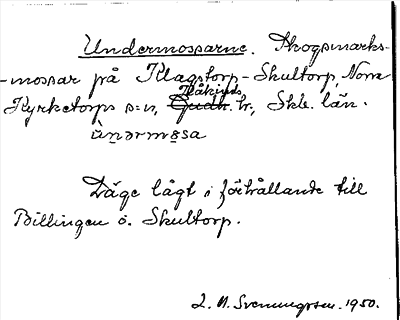 Undermossarne. Skogsmarks-
-mossar på Klagstorp-Skultorp, Norra
Kåkinds
Kyrketorps s:n, Gudh. hr, Skb. län.
ùn̠ərmo̠sa
Läge lågt i förhållande till
Billingen ö. Skultorp.
L. M. Svenungsson. 1950.